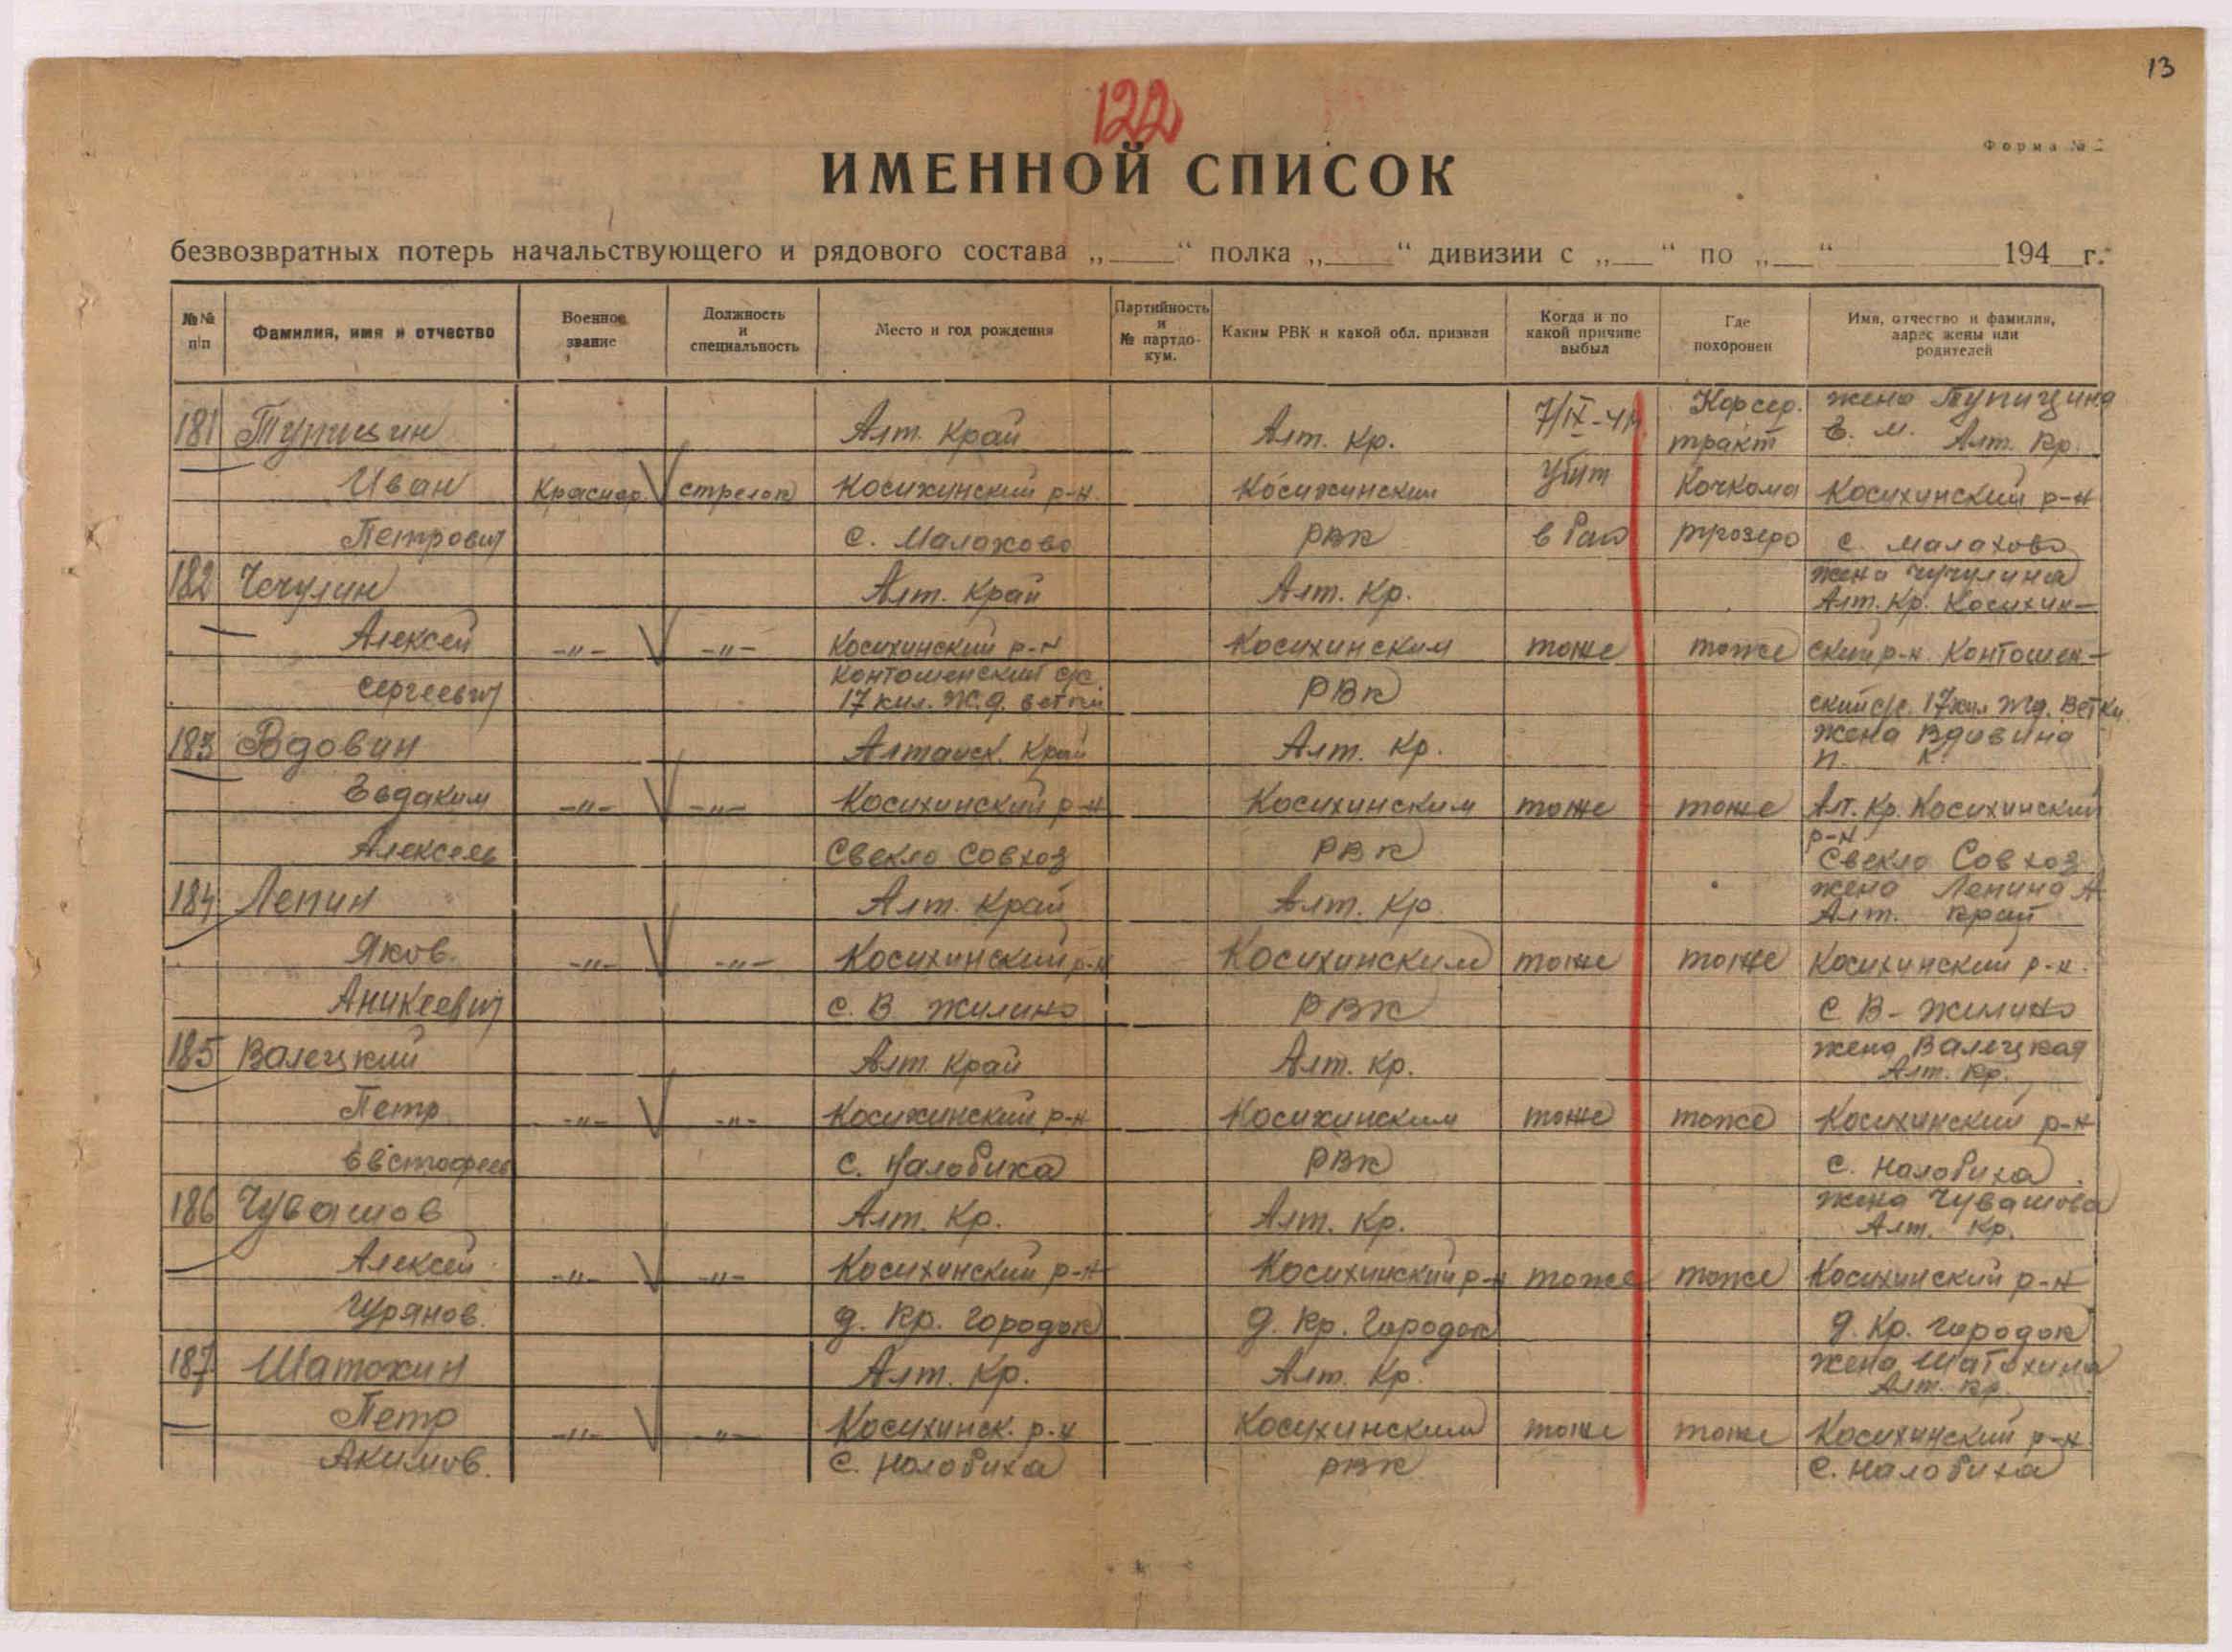 13
122
Форма № 2
ИМЕННОЙ СПИСОК
безвозвратных потерь начальствующего и рядового состава „ “ полка „ “ дивизии с „ “ по „ “ 194 г.
№№ п/п
Фамилия, имя и отчество
Военное звание
Должность и специальность
Место и год рождения
Партийность и № партдокум.
Каким РВК и какой обл. призван
Когда и по какой причине выбыл
Где похоронен
Имя, отчество и фамилия, адрес жены или родителей
181 Тупицин Алт. Край Алт. Кр. 7/IX-41 Корсер. тракт жена Тупицина Е. М. Алт. Кр.
Иван Краснар. стрелок Косихинский р-н. Косихинским убит Кочкома Косихинский р-н
Петрович с. Малахово РВК в бою с. Малахово
182 Чечулин Алт. Край Алт. Кр. жена Чучулина Алт. Кр. Косихин-
Алексей -"- -"- Косихинский р-н Косихинским тоже тоже ский р-н. Контошен-
Сергеевич Контошенский с/с 17 кил. ж.д. ветки РВК ский с/с. 17 кил жд. Ветки
183 Вдовин Алтайск. Край Алт. Кр. жена Вдовина П. К.
Евдаким -"- -"- Косихинский р-н Косихинским тоже тоже Алт. Кр. Косихинский р-н
Алексеев Свекло Совхоз РВК Свекло Совхоз
184 Лепин Алт. Край Алт. Кр жена Лепина А Алт. Край
Яков. -"- -"- Косихинский р-н Косихинским тоже тоже Косихинский р-н.
Аникеевич с. В Жилино РВК с В-Жилино
185 Валецкий Алт Край Алт. Кр. жена Валецкая Алт. Кр.
Петр -"- -"- Косихинский р-н Косихинским тоже тоже Косихинский р-н
Евстафеев с. Налобиха РВК с. Налобиха
186 Чувашов Алт. Кр. Алт. Кр. жена Чувашова Алт. Кр.
Алексей -"- -"- Косихинский р-н Косихинский р-н тоже тоже Косихинский р-н
Гурянов. д. Кр. Городок д. Кр. Городок д. Кр. городок
187 Шатохин Алт. Кр. Алт. Кр. жена Шатохина Алт. кр
Петр -"- -"- Косихинск. р-н Косихинским тоже тоже Косихинский р-н
Акимов. с. Налобиха РВК с. Налобиха